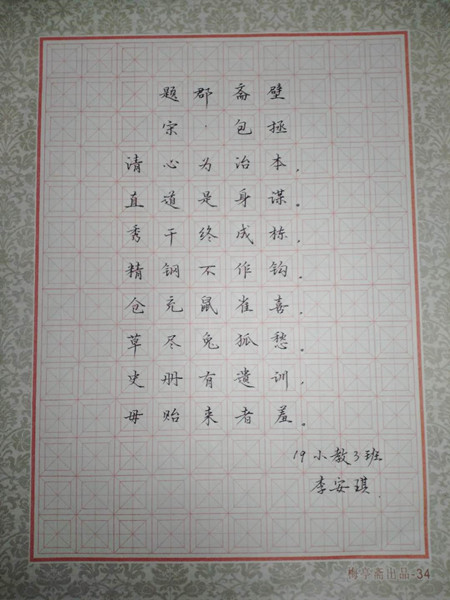 题郡斋壁
宋·包拯
清心为治本，
直道是身谋。
秀干终成栋，
精钢不作钩。
仓充鼠雀喜，
草尽兔狐愁。
史册有遗训，
毋贻来者羞。
19小教3班
李安琪.
梅亭斋出品-34